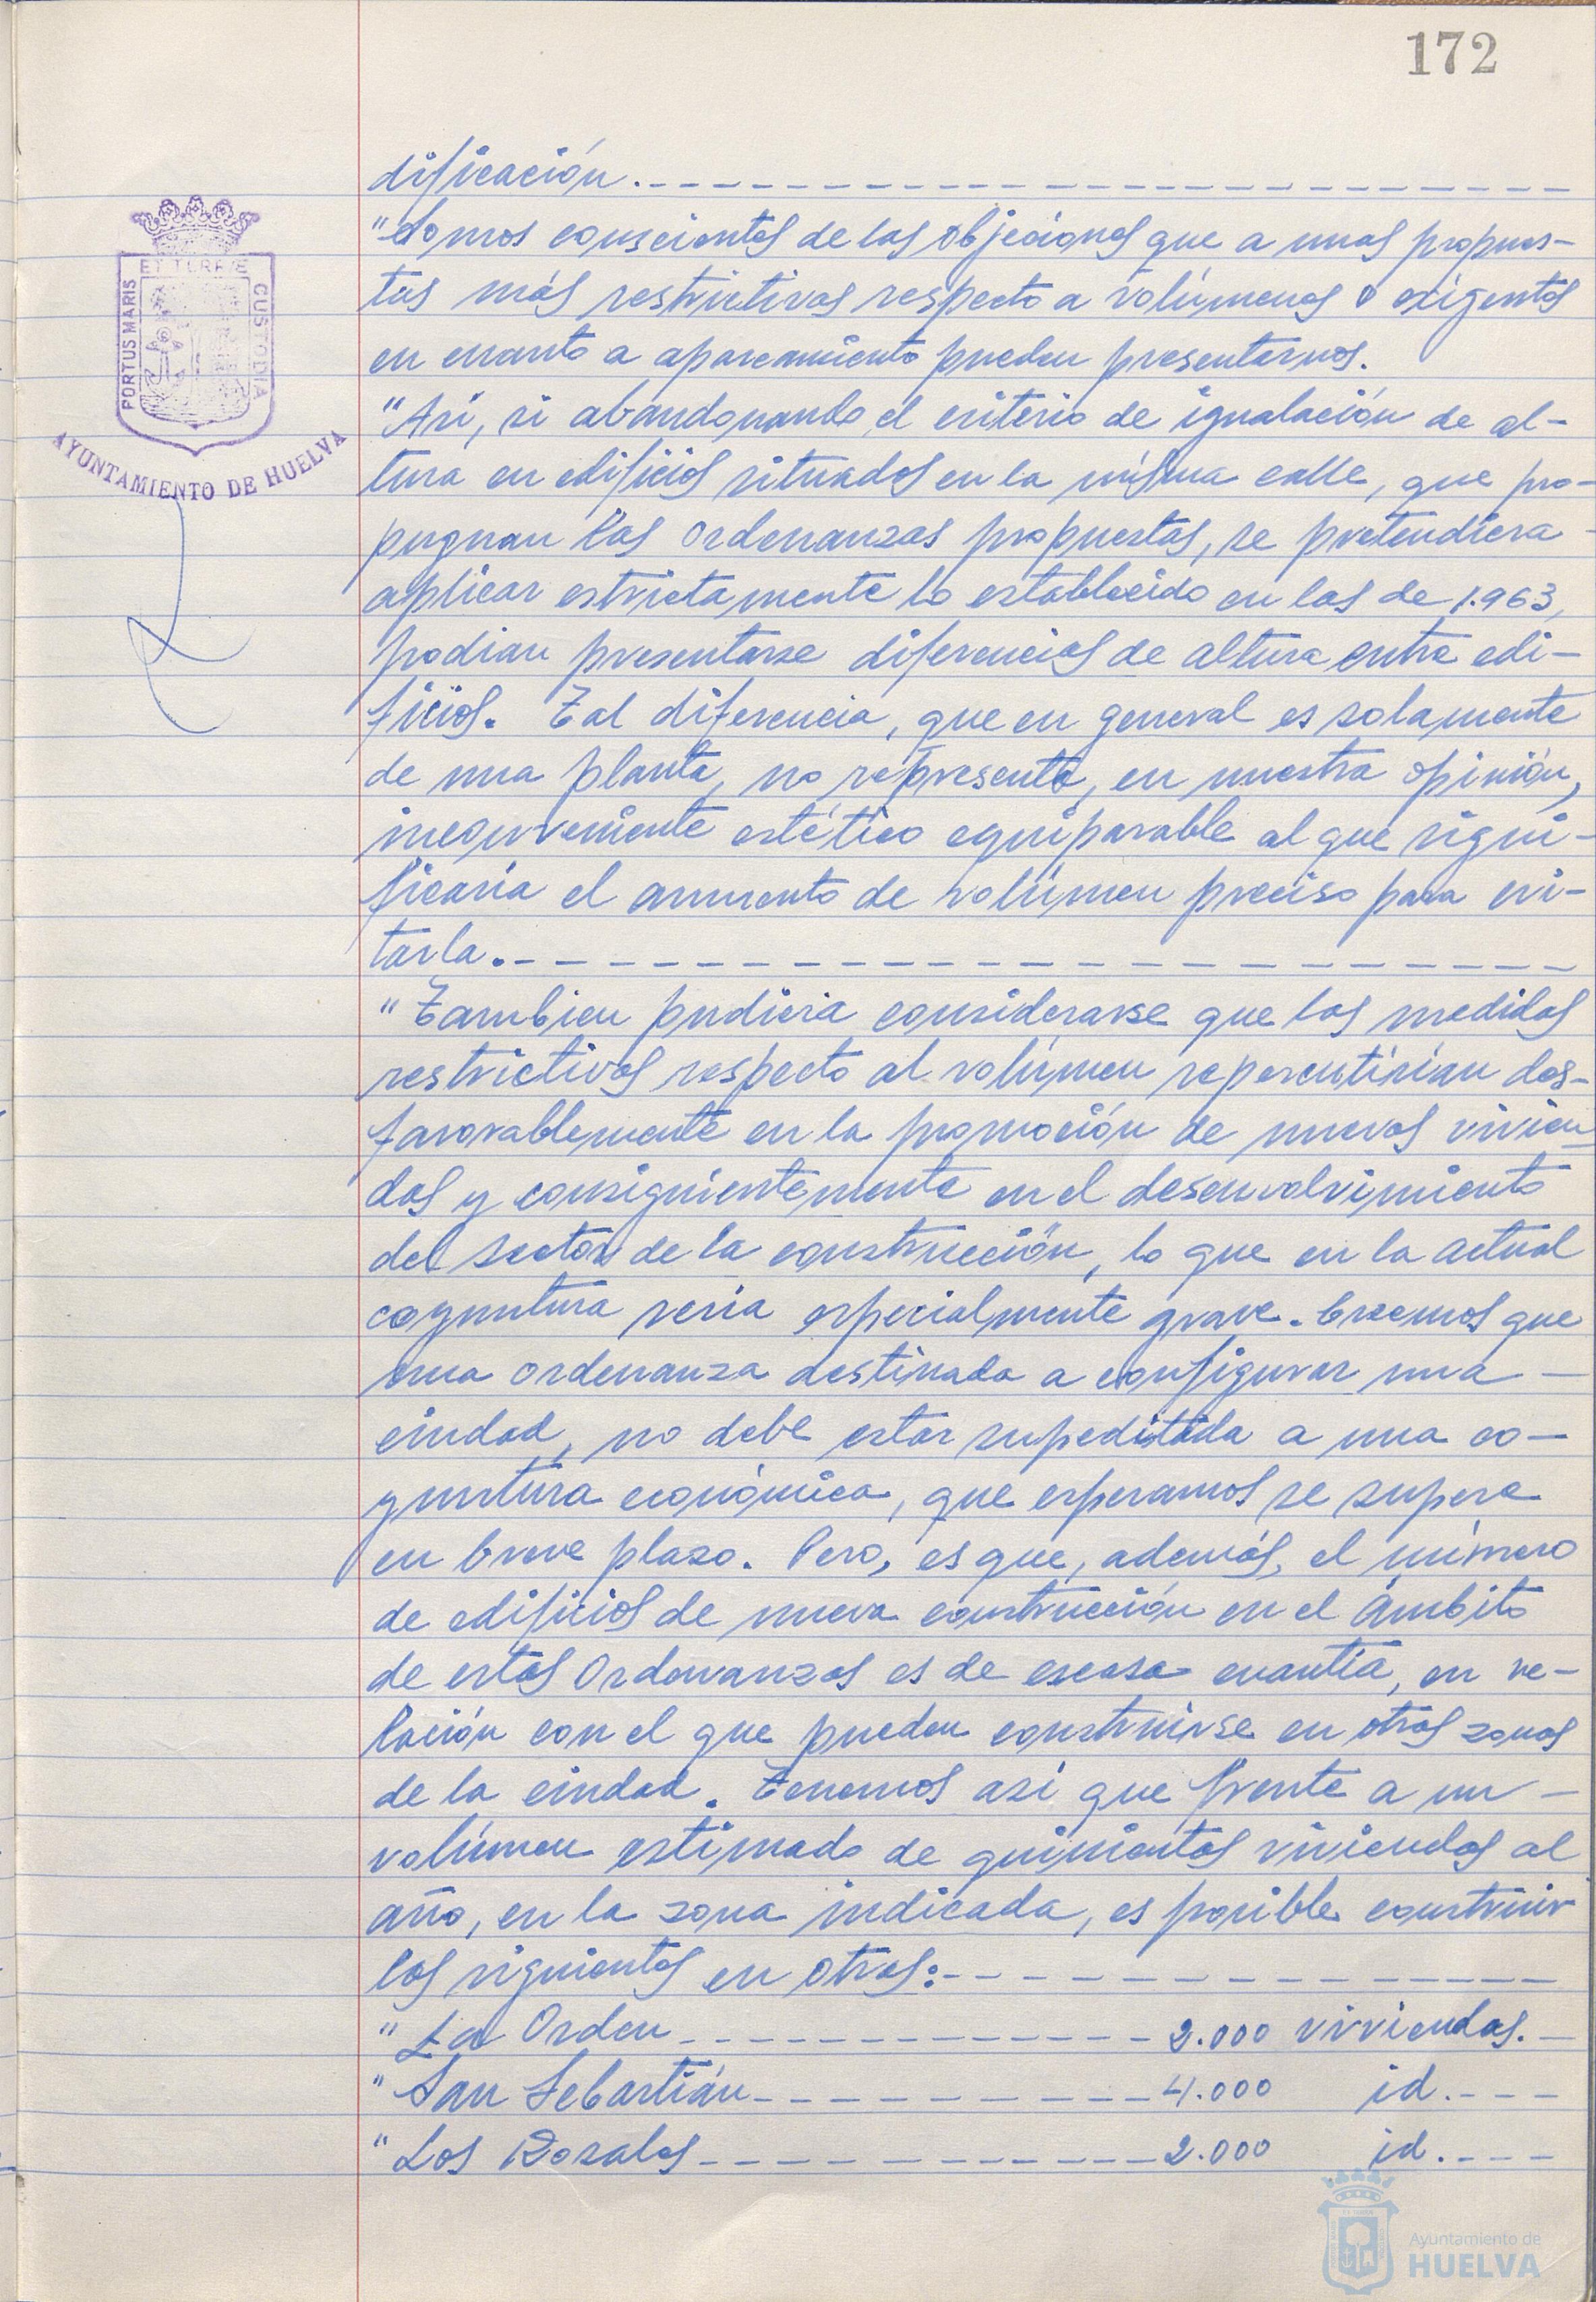 172
dificación.
"Somos conscientes de las objeciones que a unas propues-
tas más restrictivas respecto a volúmenes o exigentes
en cuanto a aparcamiento pueden presentarnos.
"Así, si abandonando el criterio de igualación de al-
tura en edificios situados en la misma calle, que pro-
pugnan las Ordenanzas propuestas, se pretendiera
aplicar estrictamente lo establecido en las de 1.963,
podian presentarse diferencias de altura entre edi-
ficios. Tal diferencia, que en general es solamente
de una planta, no representa, en nuestra opinión,
inconveniente estético equiparable al que signi-
ficaría el aumento de volúmen preciso para evi-
tarla.
"Tambien pudiera considerarse que las medidas
restrictivas respecto al volúmen repercutirían des-
favorablemente en la promoción de nuevas vivien-
das y consiguientemente en el desenvolvimiento
del sector de la construcción, lo que en la actual
coyuntura sería especialmente grave. Creemos que
una ordenanza destinada a configurar una
ciudad, no debe estar supeditada a una co-
yuntura económica, que esperamos se supere
en breve plazo. Pero, es que, además, el número
de edificios de nueva construcción en el ámbito
de estas Ordenanzas es de escasa cuantía, en re-
lación con el que pueden construirse en otras zonas
de la ciudad. Tenemos así que frente a un
volúmen estimado de quinientas viviendas al
año, en la zona indicada, es posible construir
las siguientes en otras:
"La Orden 2.000 viviendas.
"San Sebastián 4.000 id.
"Los Rosales 2.000 id.
PORTUS MARIS
ET TERRAE
CUSTODIA
AYUNTAMIENTO DE HUELVA
Ayuntamiento de
HUELVA